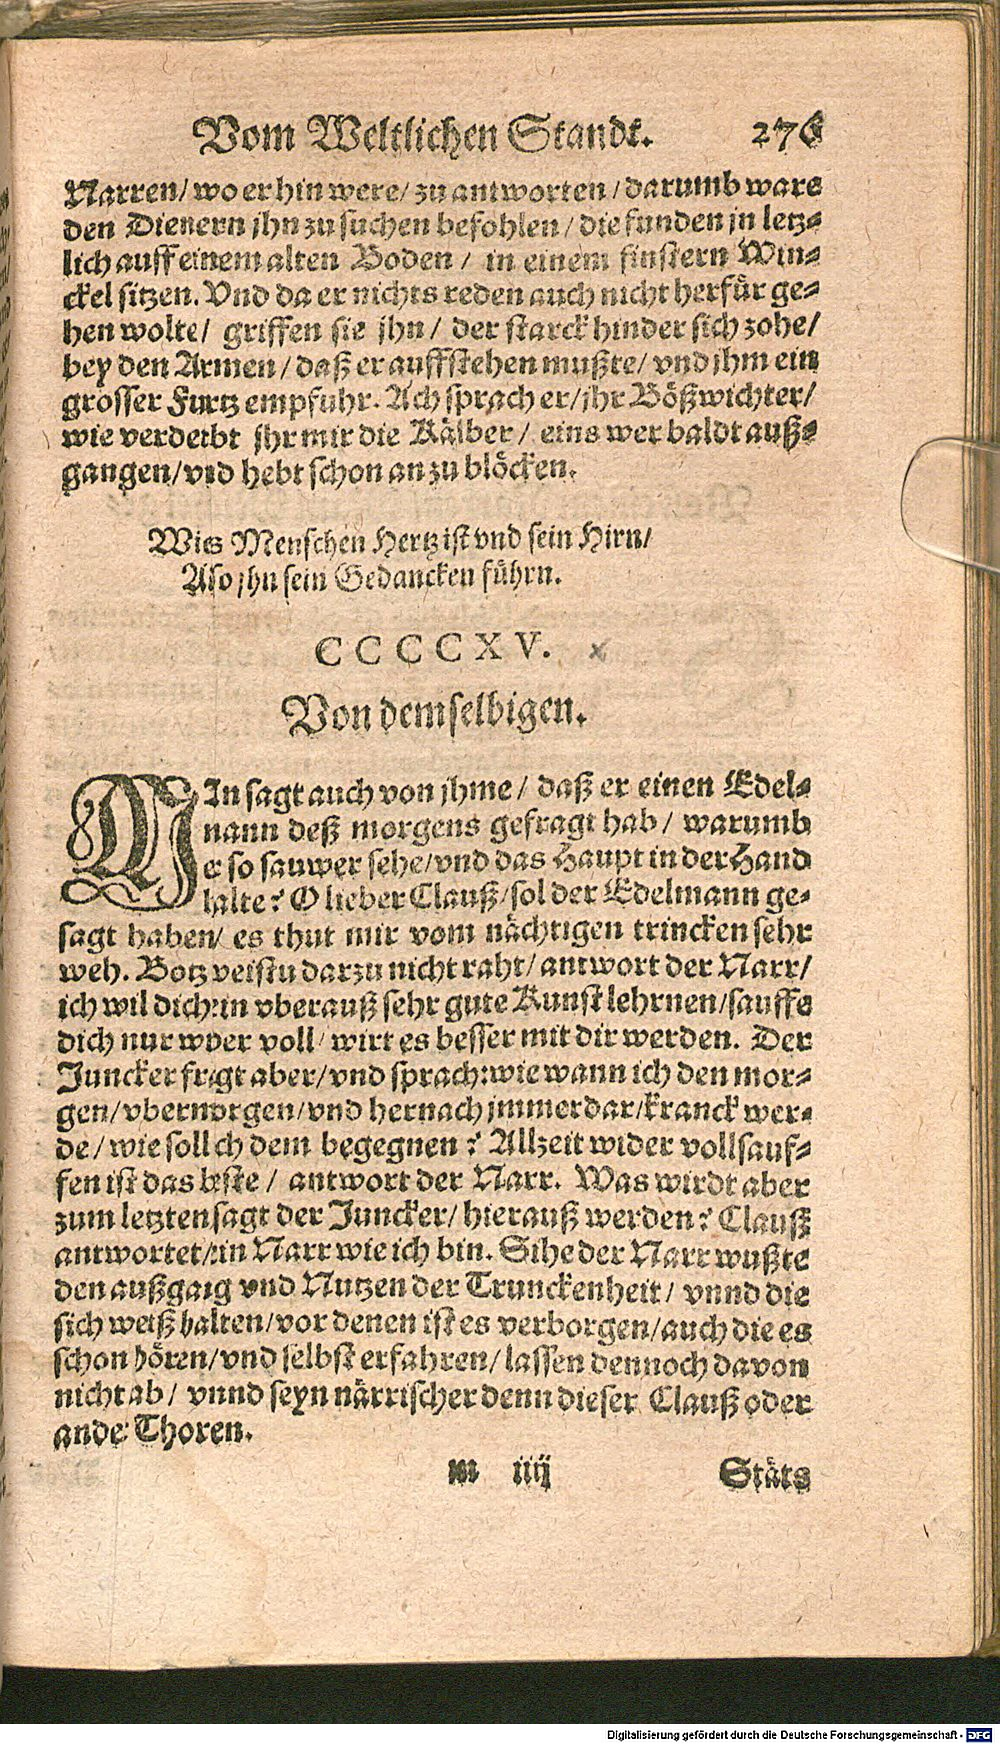 Vom Weltlichen Standt. 276
Narren/ wo er hin were/ zu antworten/ darumb ware
den Dienern jhn zu suchen befohlen/ die funden jn letz-
lich auff einem alten Boden/ in einem finstern Win-
ckel sitzen. Vnd da er nichts reden auch nicht herfür ge-
hen wolte/ griffen sie jhn/ der starck hinder sich zohe/
bey den Armen/ daß er auffstehen mußte/ vnd jhm ein
grosser Furtz empfuhr. Ach sprach er/ jhr Bößwichter/
wie verderbt jhr mir die Kälber/ eins wer baldt auß-
gangen/ vnd hebt schon an zu blöcken.
Wies Menschen Hertz ist vnd sein Hirn/
Also jhn sein Gedancken führn.
CCCCXV.
Von demselbigen.
MIn sagt auch von jhme/ daß er einen Edel-
mann deß morgens gefragt hab/ warumb
er so sauwer sehe/ vnd das Haupt in der Hand
halte? O lieber Clauß/ sol der Edelmann ge-
sagt haben/ es thut mir vom nächtigen trincken sehr
weh. Botz veistu darzu nicht raht/ antwort der Narr/
ich wil dich ein vberauß sehr gute Kunst lehrnen/ sauffe
dich nur wder voll/ wirt es besser mit dir werden. Der
Juncker fragt aber/ vnd sprach: wie wann ich den mor-
gen/ vbermorgen/ vnd hernach jmmerdar/ kranck wer-
de/ wie soll ch dem begegnen? Allzeit wider vollsauf-
fen ist das beste/ antwort der Narr. Was wirdt aber
zum letzten sagt der Juncker/ hierauß werden? Clauß
antwortet/ ein Narr wie ich bin. Sihe der Narr wußte
den außgang vnd Nutzen der Trunckenheit/ vnnd die
sich weiß halten/ vor denen ist es verborgen/ auch die es
schon hören/ vnd selbst erfahren/ lassen dennoch davon
nicht ab/ vnnd seyn närrischer denn dieser Clauß oder
ande: Thoren.
m iiij Stäts
Digitalisierung gefördert durch die Deutsche Forschungsgemeinschaft - DFG